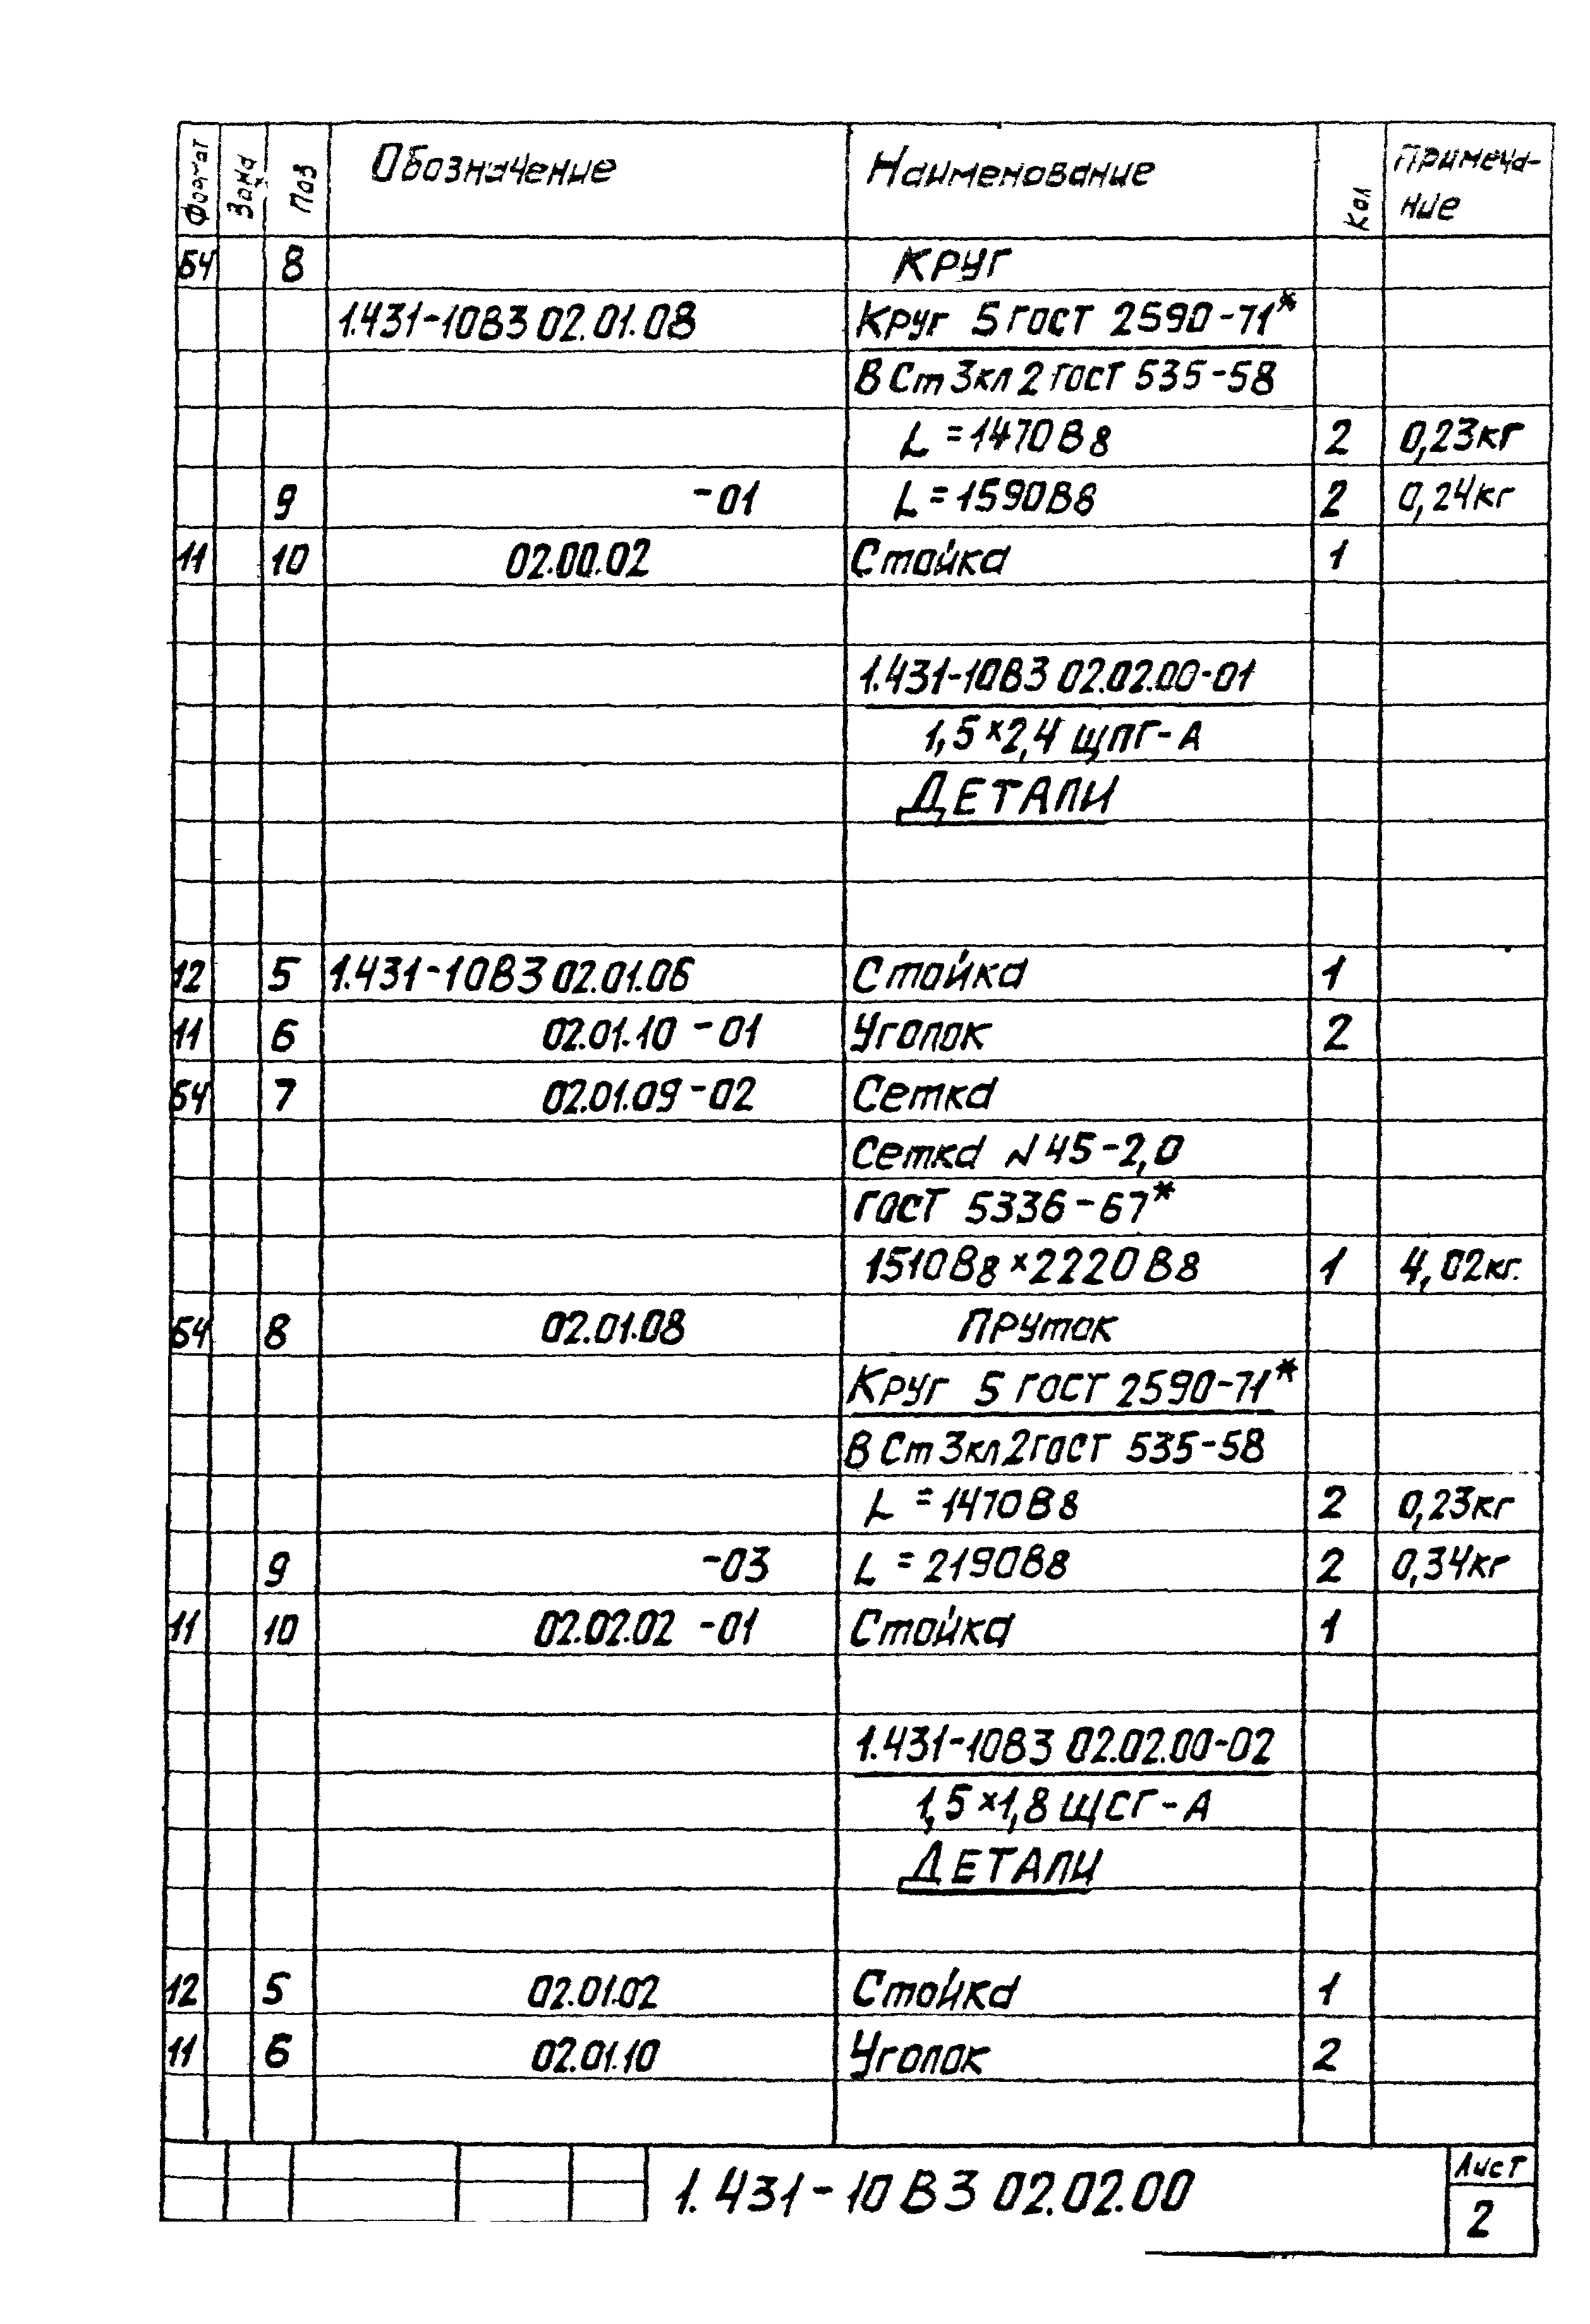 Формат Зона Поз Обозначение Наименование Кол Примеча-
ние
Б4 8 Круг
1.431-10В3 02.01.08 Круг 5 ГОСТ 2590-71*
В Ст3кп2 ГОСТ 535-58
L=1470В8 2 0,23кг
9 -01 L=1590В8 2 0,24кг
11 10 02.00.02 Стойка 1
1.431-10В3 02.02.00-01
1,5×2,4 ЩПГ-А
ДЕТАЛИ
12 5 1.431-10В3 02.01.06 Стойка 1
11 6 02.01.10 -01 Уголок 2
Б4 7 02.01.09-02 Сетка
Сетка N45-2,0
ГОСТ 5336-67*
1510В8×2220В8 1 4,02кг.
Б4 8 02.01.08 Пруток
Круг 5 ГОСТ 2590-71*
В Ст3кп2 ГОСТ 535-58
L=1470В8 2 0,23кг
9 -03 L=2190В8 2 0,34кг
11 10 02.02.02 -01 Стойка 1
1.431-10В3 02.02.00-02
1,5×1,8 ЩСГ-А
ДЕТАЛИ
12 5 02.01.02 Стойка 1
11 6 02.01.10 Уголок 2
1.431-10В3 02.02.00 Лист
2